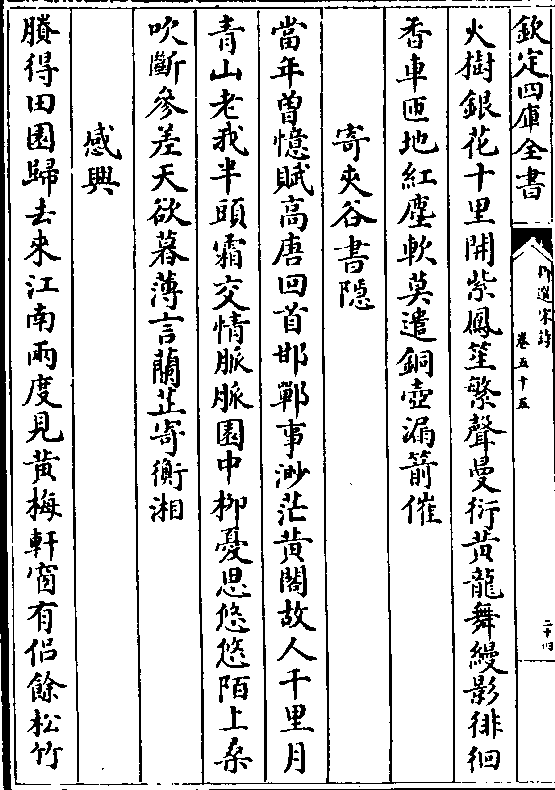 欽定四庫全書
御選宋詩
卷五十五
二十四
火樹銀花十里開紫鳳笙繁聲曼衍黄龍舞縵影徘徊
香車匝地紅塵軟莫遣銅壺漏箭催
寄夾谷書隠
當年曽憶賦高唐回首邯鄲事渺茫黄閣故人千里月
青山老我半頭霜交情脈脈園中柳憂思悠悠陌上桑
吹斷參差天欲暮薄言蘭芷寄衡湘
感興
賸得田園歸去來江南兩度見黄梅軒窗有侣餘松竹